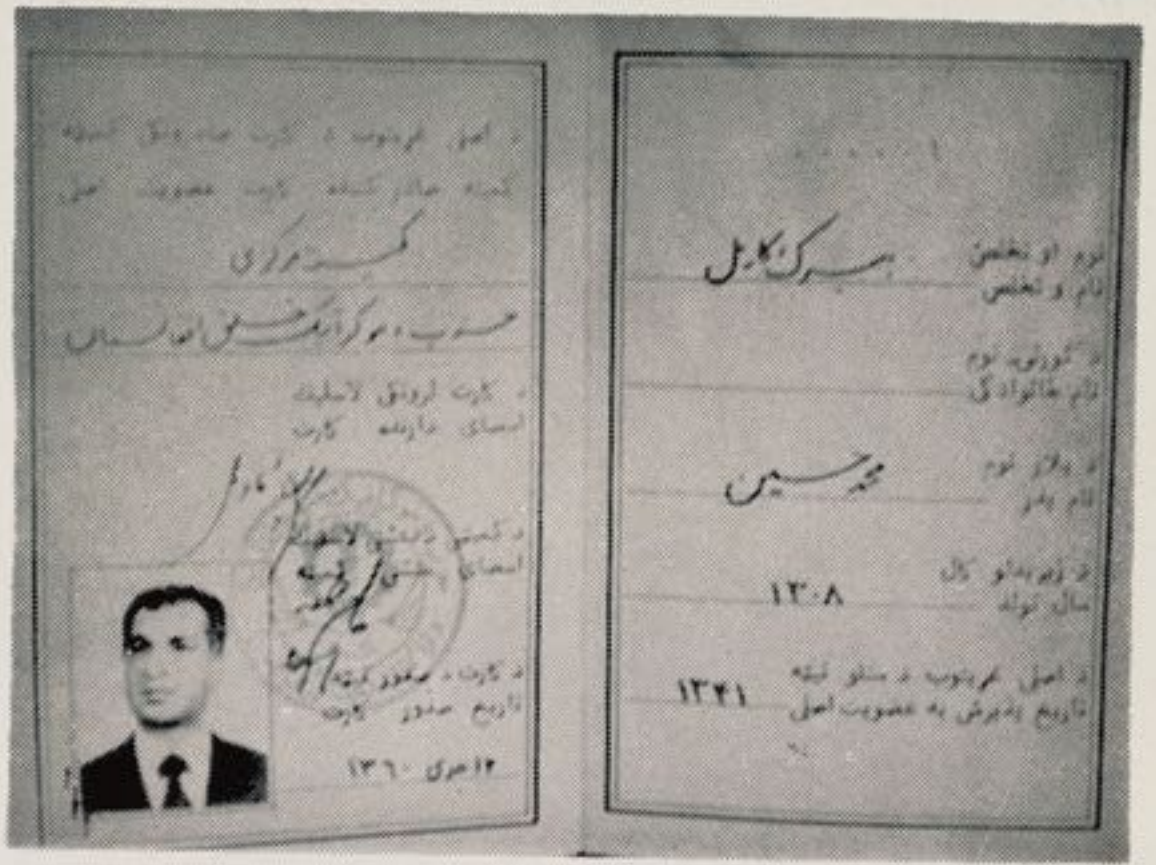 ۰۰۰۰۰۱
نوم او تخلص
نام و تخلص
ببرک کارمل
د کورنۍ نوم
نام خانوادگی
د پلار نوم
نام پدر
محمد حسین
د زیږیدلو کال
سال تولد
۱۳۰۸
د اصلی غړیتوب د منلو نیټه
تاریخ پذیرش به عضویت اصلی
۱۳۴۱
د اصلی غړیتوب د کارت صادرونکی کمیټه
کمیته صادر کننده کارت عضویت اصلی
کمیته مرکزی
حزب دموکراتیک خلق افغانستان
د کارت لرونکی لاسلیک
امضای دارنده کارت
د کمیټی د منشی لاسلیک
امضای منشی کمیته
د کارت د صدور نیټه
تاریخ صدور کارت
۱۲ جدی ۱۳۶۰